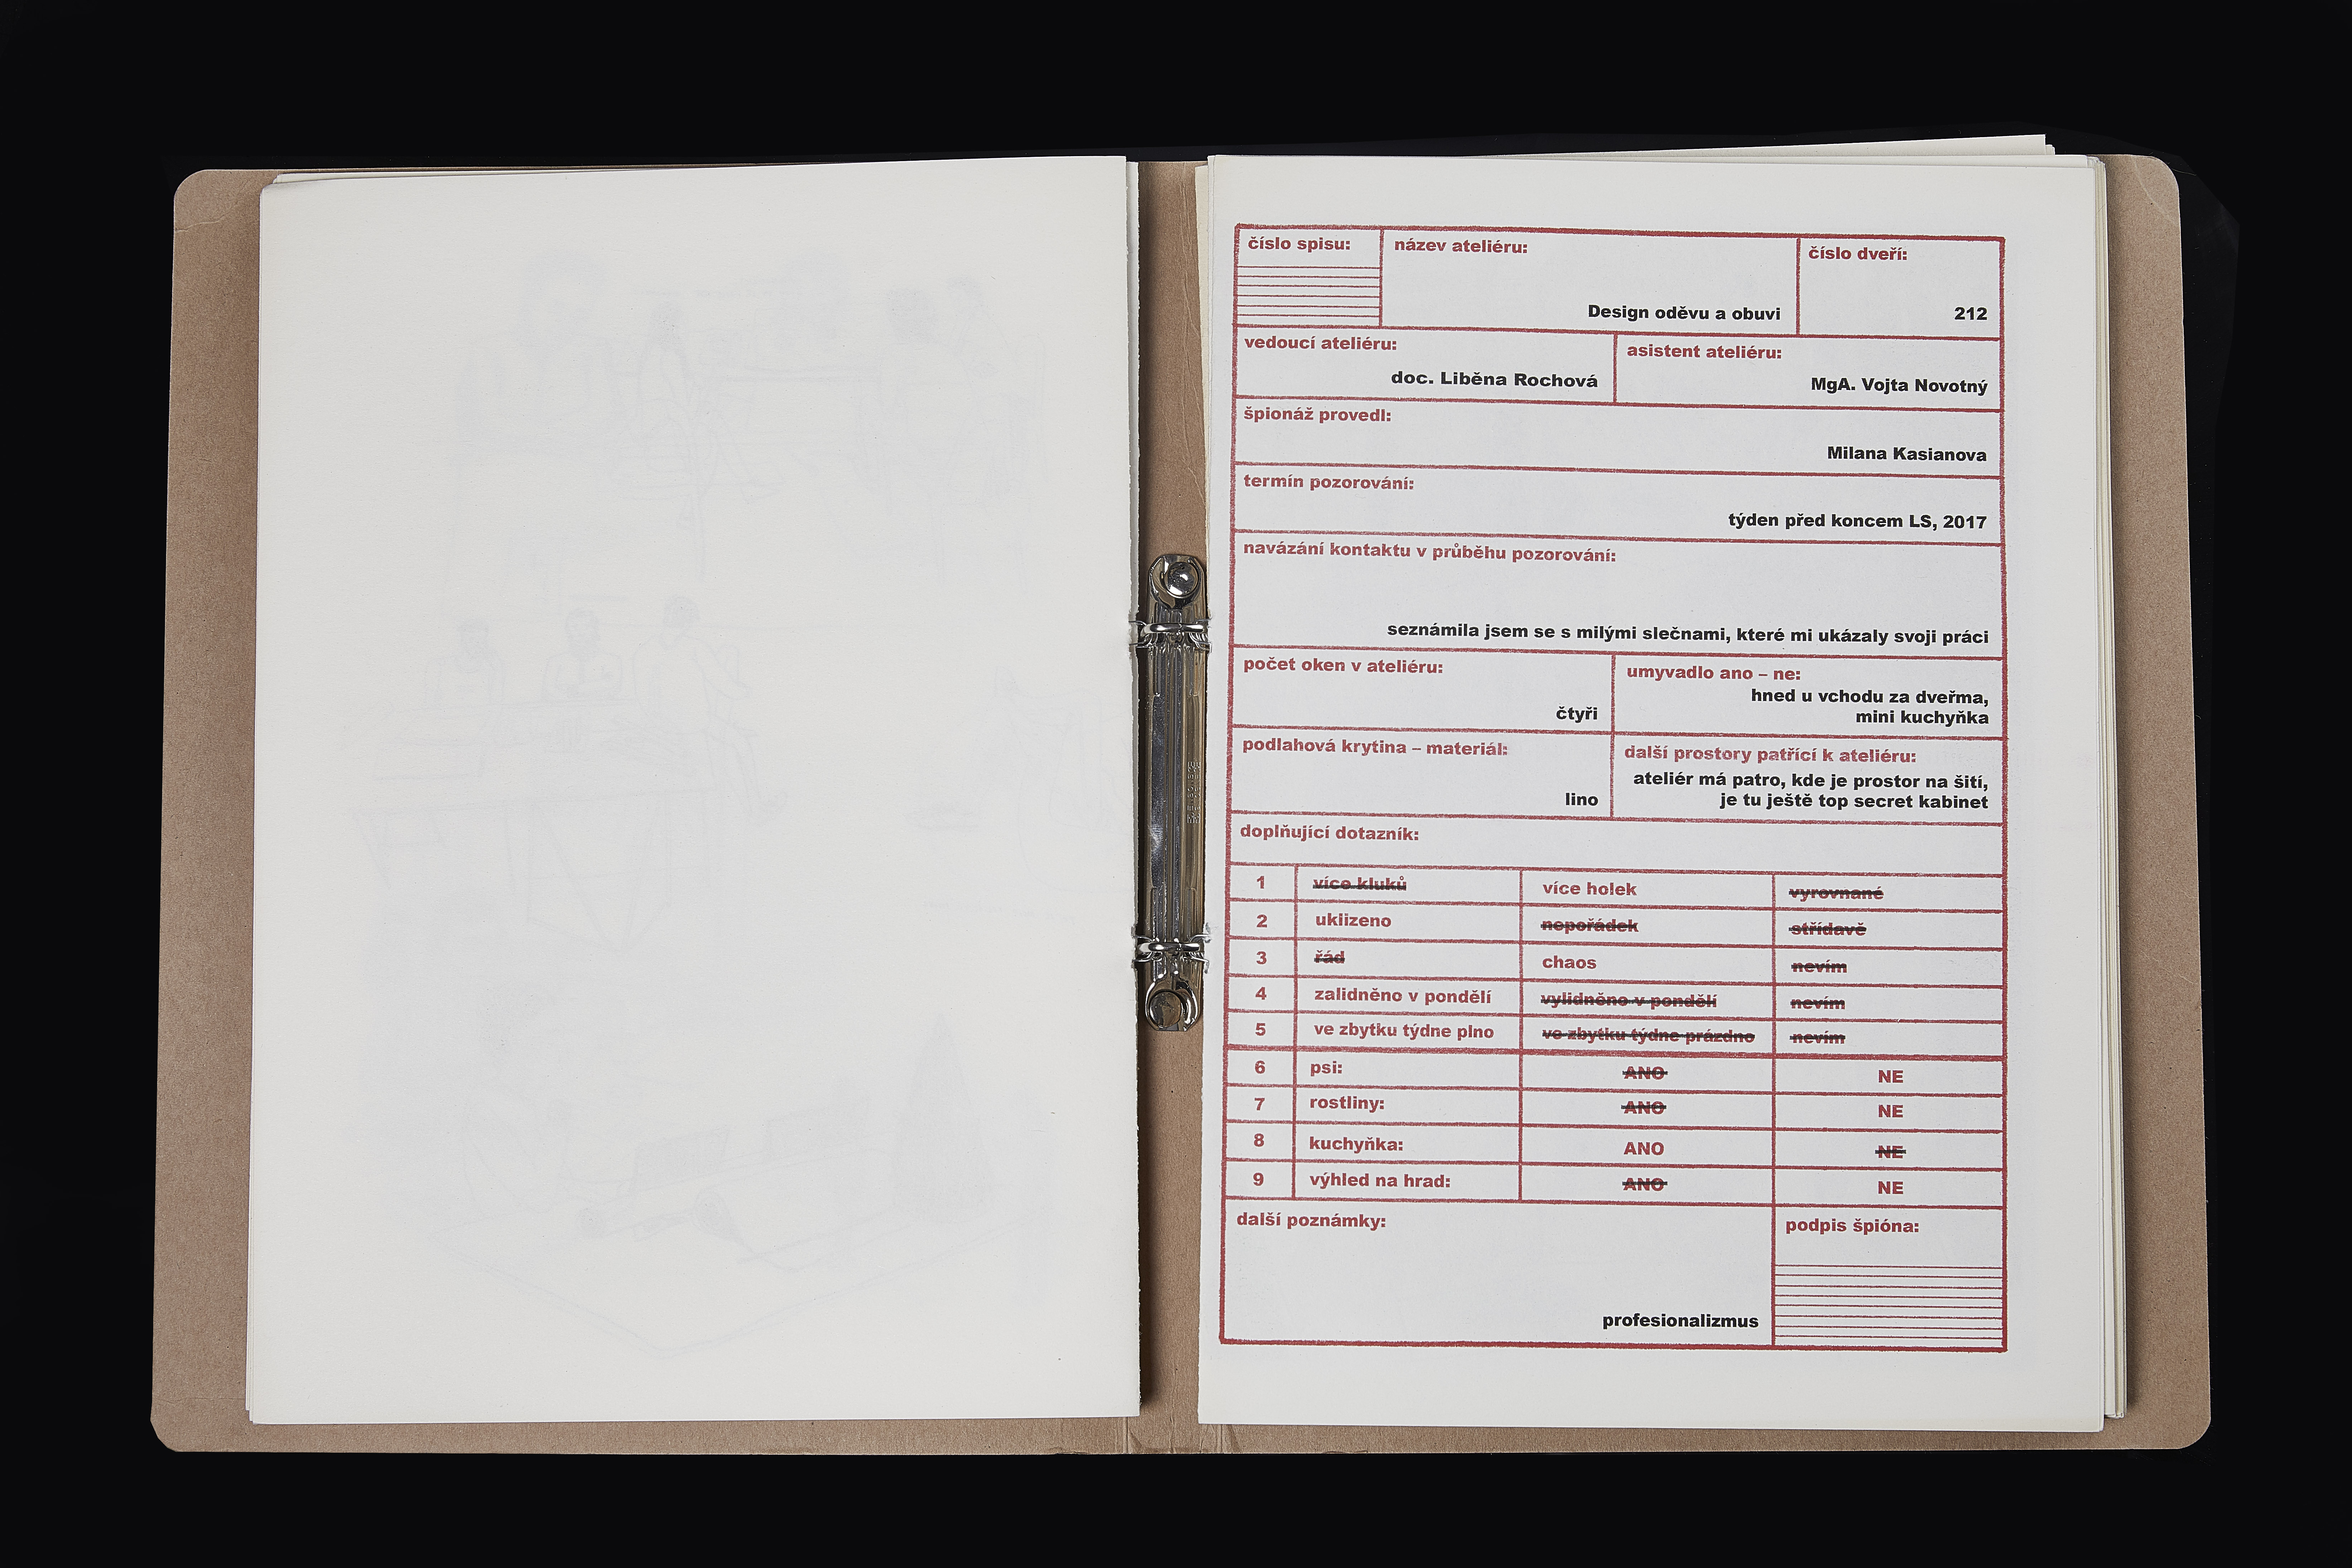 číslo spisu:
název ateliéru:
Design oděvu a obuvi
číslo dveří:
212
vedoucí ateliéru:
doc. Liběna Rochová
asistent ateliéru:
MgA. Vojta Novotný
špionáž provedl:
Milana Kasianova
termín pozorování:
týden před koncem LS, 2017
navázání kontaktu v průběhu pozorování:
seznámila jsem se s milými slečnami, které mi ukázaly svoji práci
počet oken v ateliéru:
čtyři
umyvadlo ano – ne:
hned u vchodu za dveřma,
mini kuchyňka
podlahová krytina – materiál:
lino
další prostory patřící k ateliéru:
ateliér má patro, kde je prostor na šití,
je tu ještě top secret kabinet
doplňující dotazník:
1 více kluků více holek vyrovnané
2 uklizeno nepořádek střídavě
3 řád chaos nevím
4 zalidněno v pondělí vylidněno v pondělí nevím
5 ve zbytku týdne plno ve zbytku týdne prázdno nevím
6 psi: ANO NE
7 rostliny: ANO NE
8 kuchyňka: ANO NE
9 výhled na hrad: ANO NE
další poznámky:
profesionalizmus
podpis špióna: